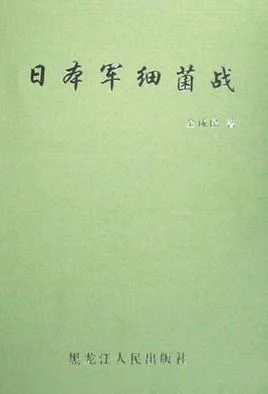 日本军细菌战
金成民 著
黑龙江人民出版社